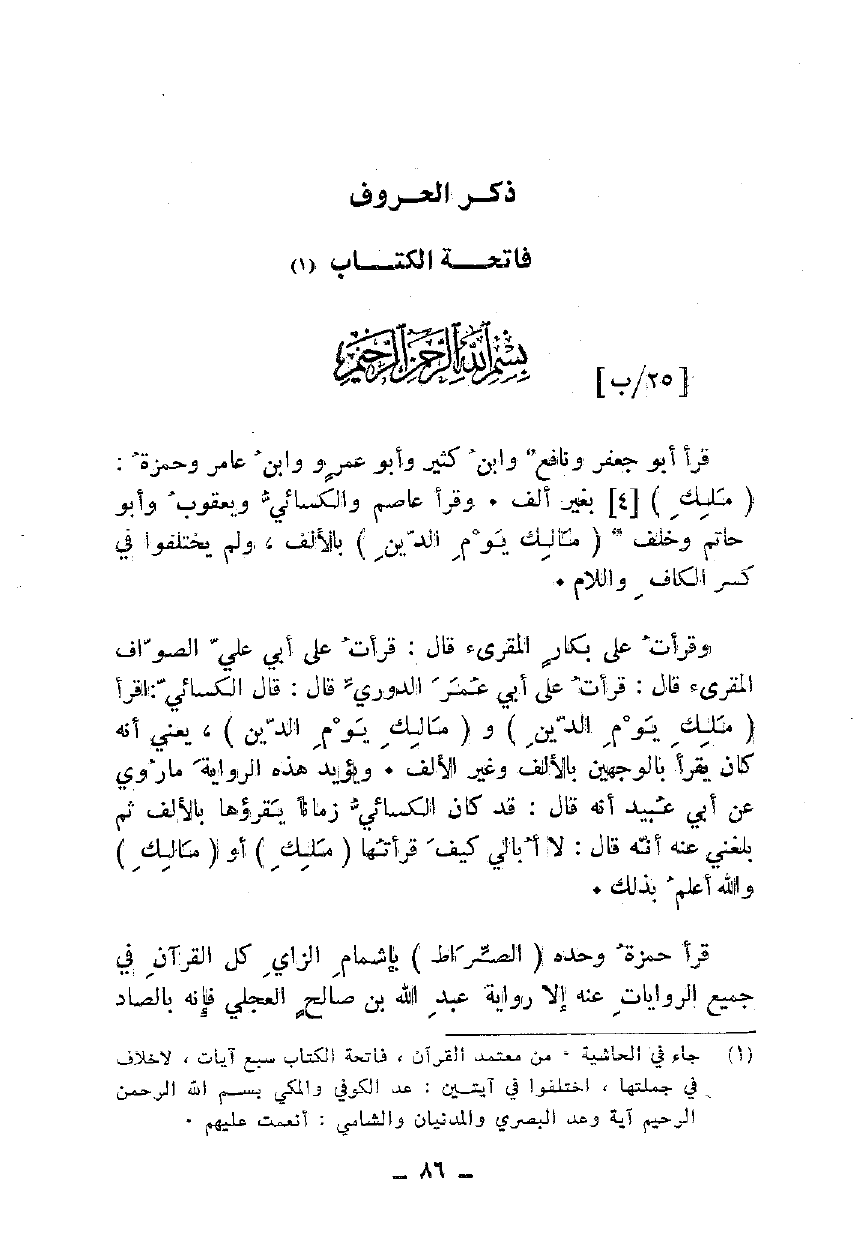 ذكـر الحـروف
فاتحـــة الكتـــاب (١)
بِسْمِ اللهِ الرَّحْمٰنِ الرَّحِيمِ
[٢٥/ب]
قرأ أبو جعفر ونافعٌ وابنُ كثير وأبو عمرٍو وابنُ عامر وحمزةُ :
( مَلِكِ ) [٤] بغير ألف ٠ وقرأ عاصم والكسائيُّ ويعقوبُ وأبو
حاتم وخلف * ( مَالِكِ يَوْمِ الدِّينِ ) بالألف ، ولم يختلفوا في
كسر الكافِ واللام ٠
وقرأتُ على بكارٍ المقرىء قال : قرأتُ على أبي عليّ الصوّاف
المقرىء قال : قرأتُ على أبي عُمَرَ الدوريِّ قال : قال الكسائيّ : اقرأ
( مَلِكِ يَوْمِ الدِّينِ ) و ( مَالِكِ يَوْمِ الدِّين ) ، يعني أنه
كان يقرأ بالوجهين بالألف وغير الألف ٠ ويؤيد هذه الروايةَ ما رُوي
عن أبي عُبيد أنه قال : قد كان الكسائيُّ زماناً يَقرؤها بالألف ثم
بلغني عنه أنّه قال : لا أُبالي كيفَ قرأتُها ( مَلِكِ ) أو ( مَالِكِ )
والله أعلمُ بذلك ٠
قرأ حمزةُ وحده ( الصِّرَاط ) بإشمامِ الزايِ كل القرآنِ في
جميع الرواياتِ عنه إلا روايةَ عبدِ الله بن صالحٍ العجلي فإنه بالصاد
(١) جاء في الحاشية - من معتمد القرآن ، فاتحة الكتاب سبع آيات ، لاخلاف
في جملتها ، اختلفوا في آيتـين : عد الكوفي والمكي بسـم الله الرحمن
الرحيم آية وعد البصري والمدنيان والشامي : أنعمت عليهم ٠
ـ ٨٦ ـ